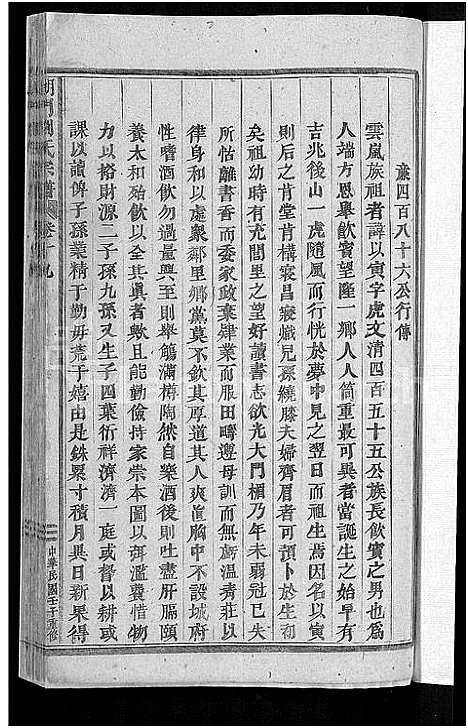 彥四百八十六公行傳
雲嵐族祖者諱以寅字虎文清四百五十五公族長飲賓之男也爲
人端方恩舉飲賓望隆一鄉人人箇重最可異者當誕生之始早有
吉兆後山一虎隨風而行恍於夢中見之翌日而祖生焉因名以寅
則后之肯堂肯構寢昌寢熾兒孫繞膝夫婦齊眉者可預卜於生初
矣祖幼時有充閭里之望好讀書志欲光大門楣乃年未弱冠已失
所怙離書香而委家政棄肄業而服田疇遵母訓而無虧溫清莊以
律身和以處衆鄰里鄉黨莫不飲其厚道其人爽直胸中不設城府
性嗜酒飲勿過量興至則舉觴滿樽陶然自樂酒後則吐盡肝膈頤
養太和殆飲以全其眞者歟且能勤儉持家崇本圖以御濫費惜物
力以裕財源二子孫九孫又生子四葉衍祥濟濟一庭或督以耕或
課以讀俾子孫業精于勤毋荒于嬉由是銖累寸積月異日新果得
湖門劉氏宗譜
卷十九
中華民國壬子重修